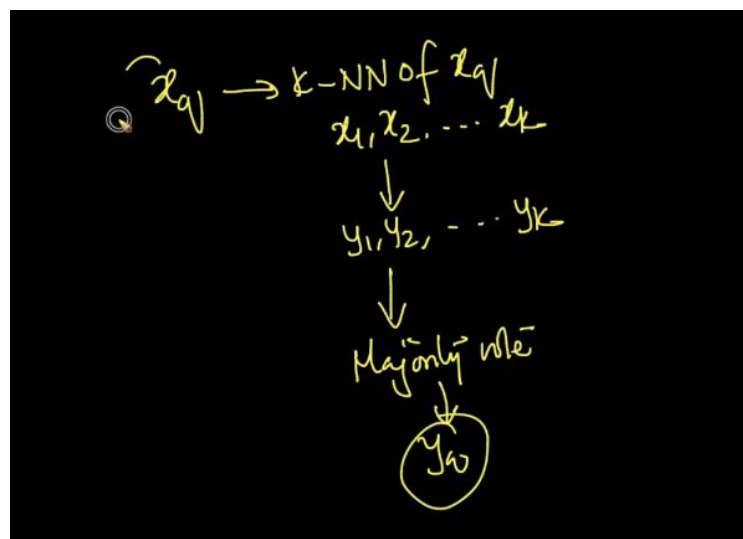 xq → K-NN of xq
x1, x2, .... xK
↓
y1, y2, .... yK
↓
Majority vote
↓
yq